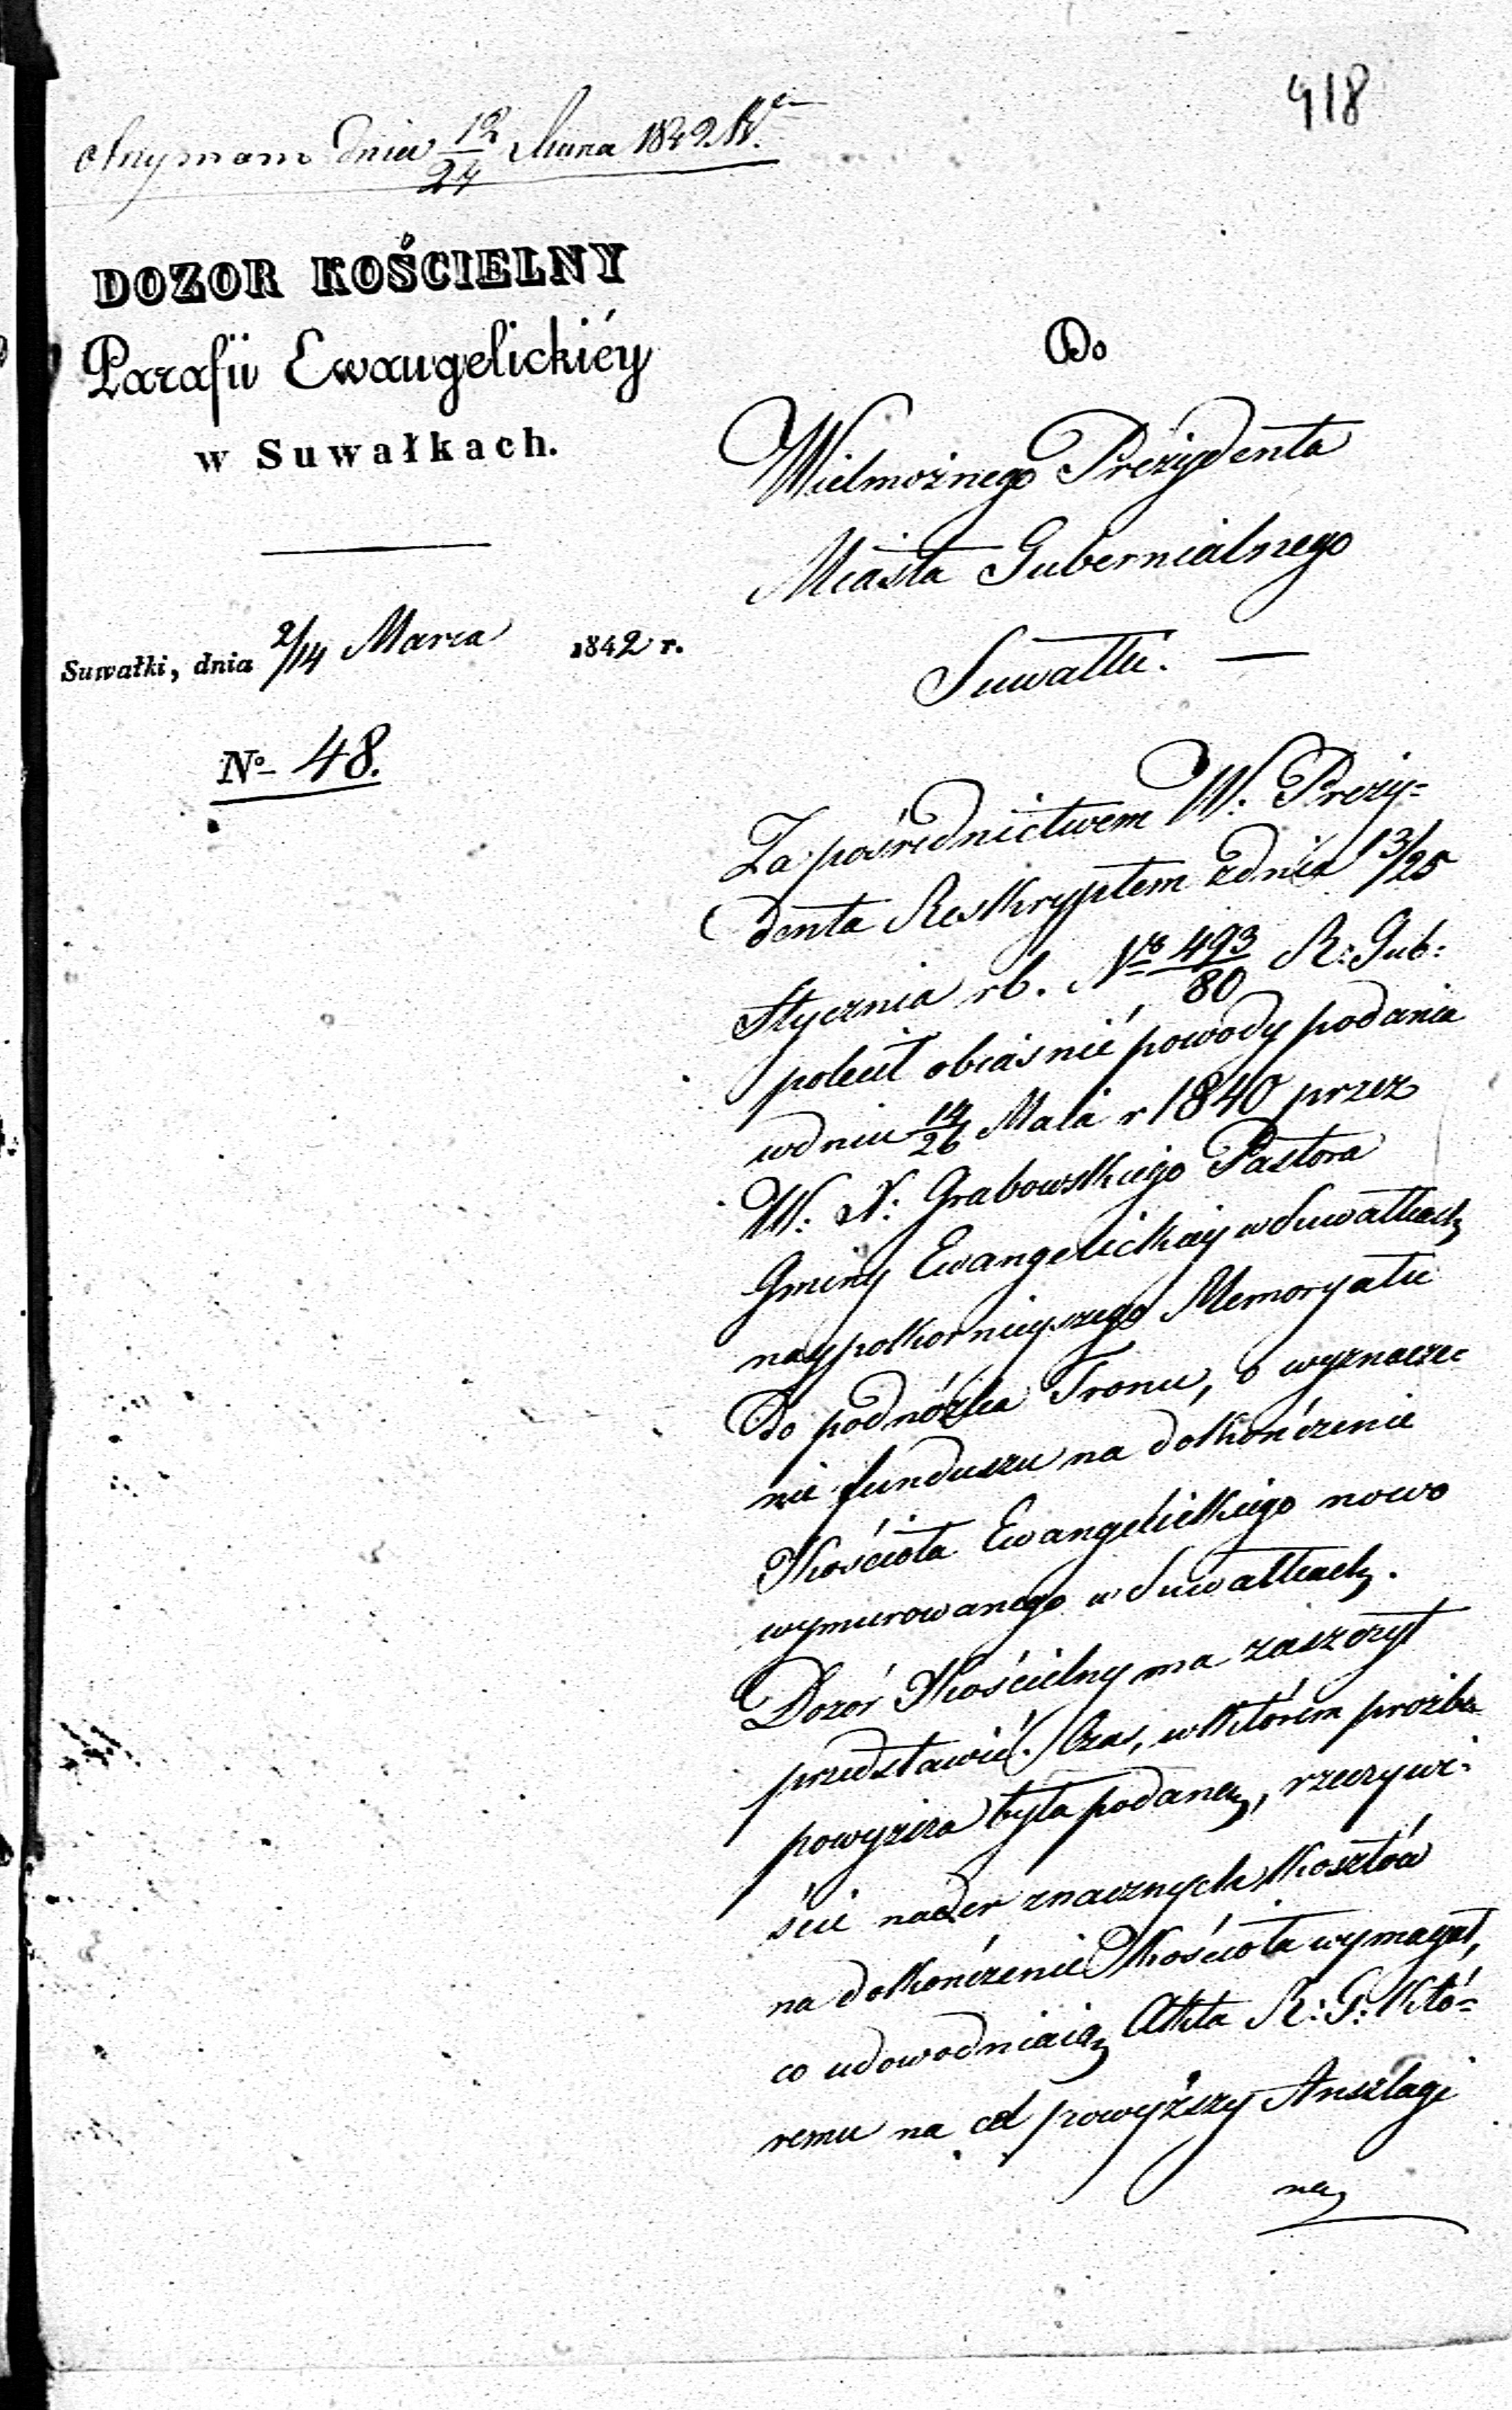 418
otrzymano dnia 12/24 Marca 1842 r.
DOZOR KOŚCIELNY
Parafii Ewangelickiéy
w Suwałkach.
Suwałki, dnia 2/14 Marca 1842 r.
No 48.
Do
Wielmożnego Prezydenta
Miasta Gubernialnego
Suwałki. —
Za pośrednictwem W. Prezy=
denta Reskryptem z dnia 13/25
Stycznia r b. No 493/80 R: Gub:
polecił obiaśnić powody podania
w dniu 14/26 Maia r 1840 przez
W. X: Grabowskiego Pastora
Gminy Ewangelickiey w Suwałkach
naypokornieyszego Memoryału
do podnóżka Tronu, o wyznacze=
nie funduszu na dokończenie
Kościoła Ewangelickiego nowo
wymurowanego w Suwałkach.
Dozór Kościelny ma zaszczyt
przedstawić. Czas, w którém prożba
powyższa była podaną, rzeczywi=
ście nader znacznych kosztów
na dokończenie Kościoła wymagał,
co udowodniaią Akta R: G: któ=
remu na cel powyższy Anszlagi
na